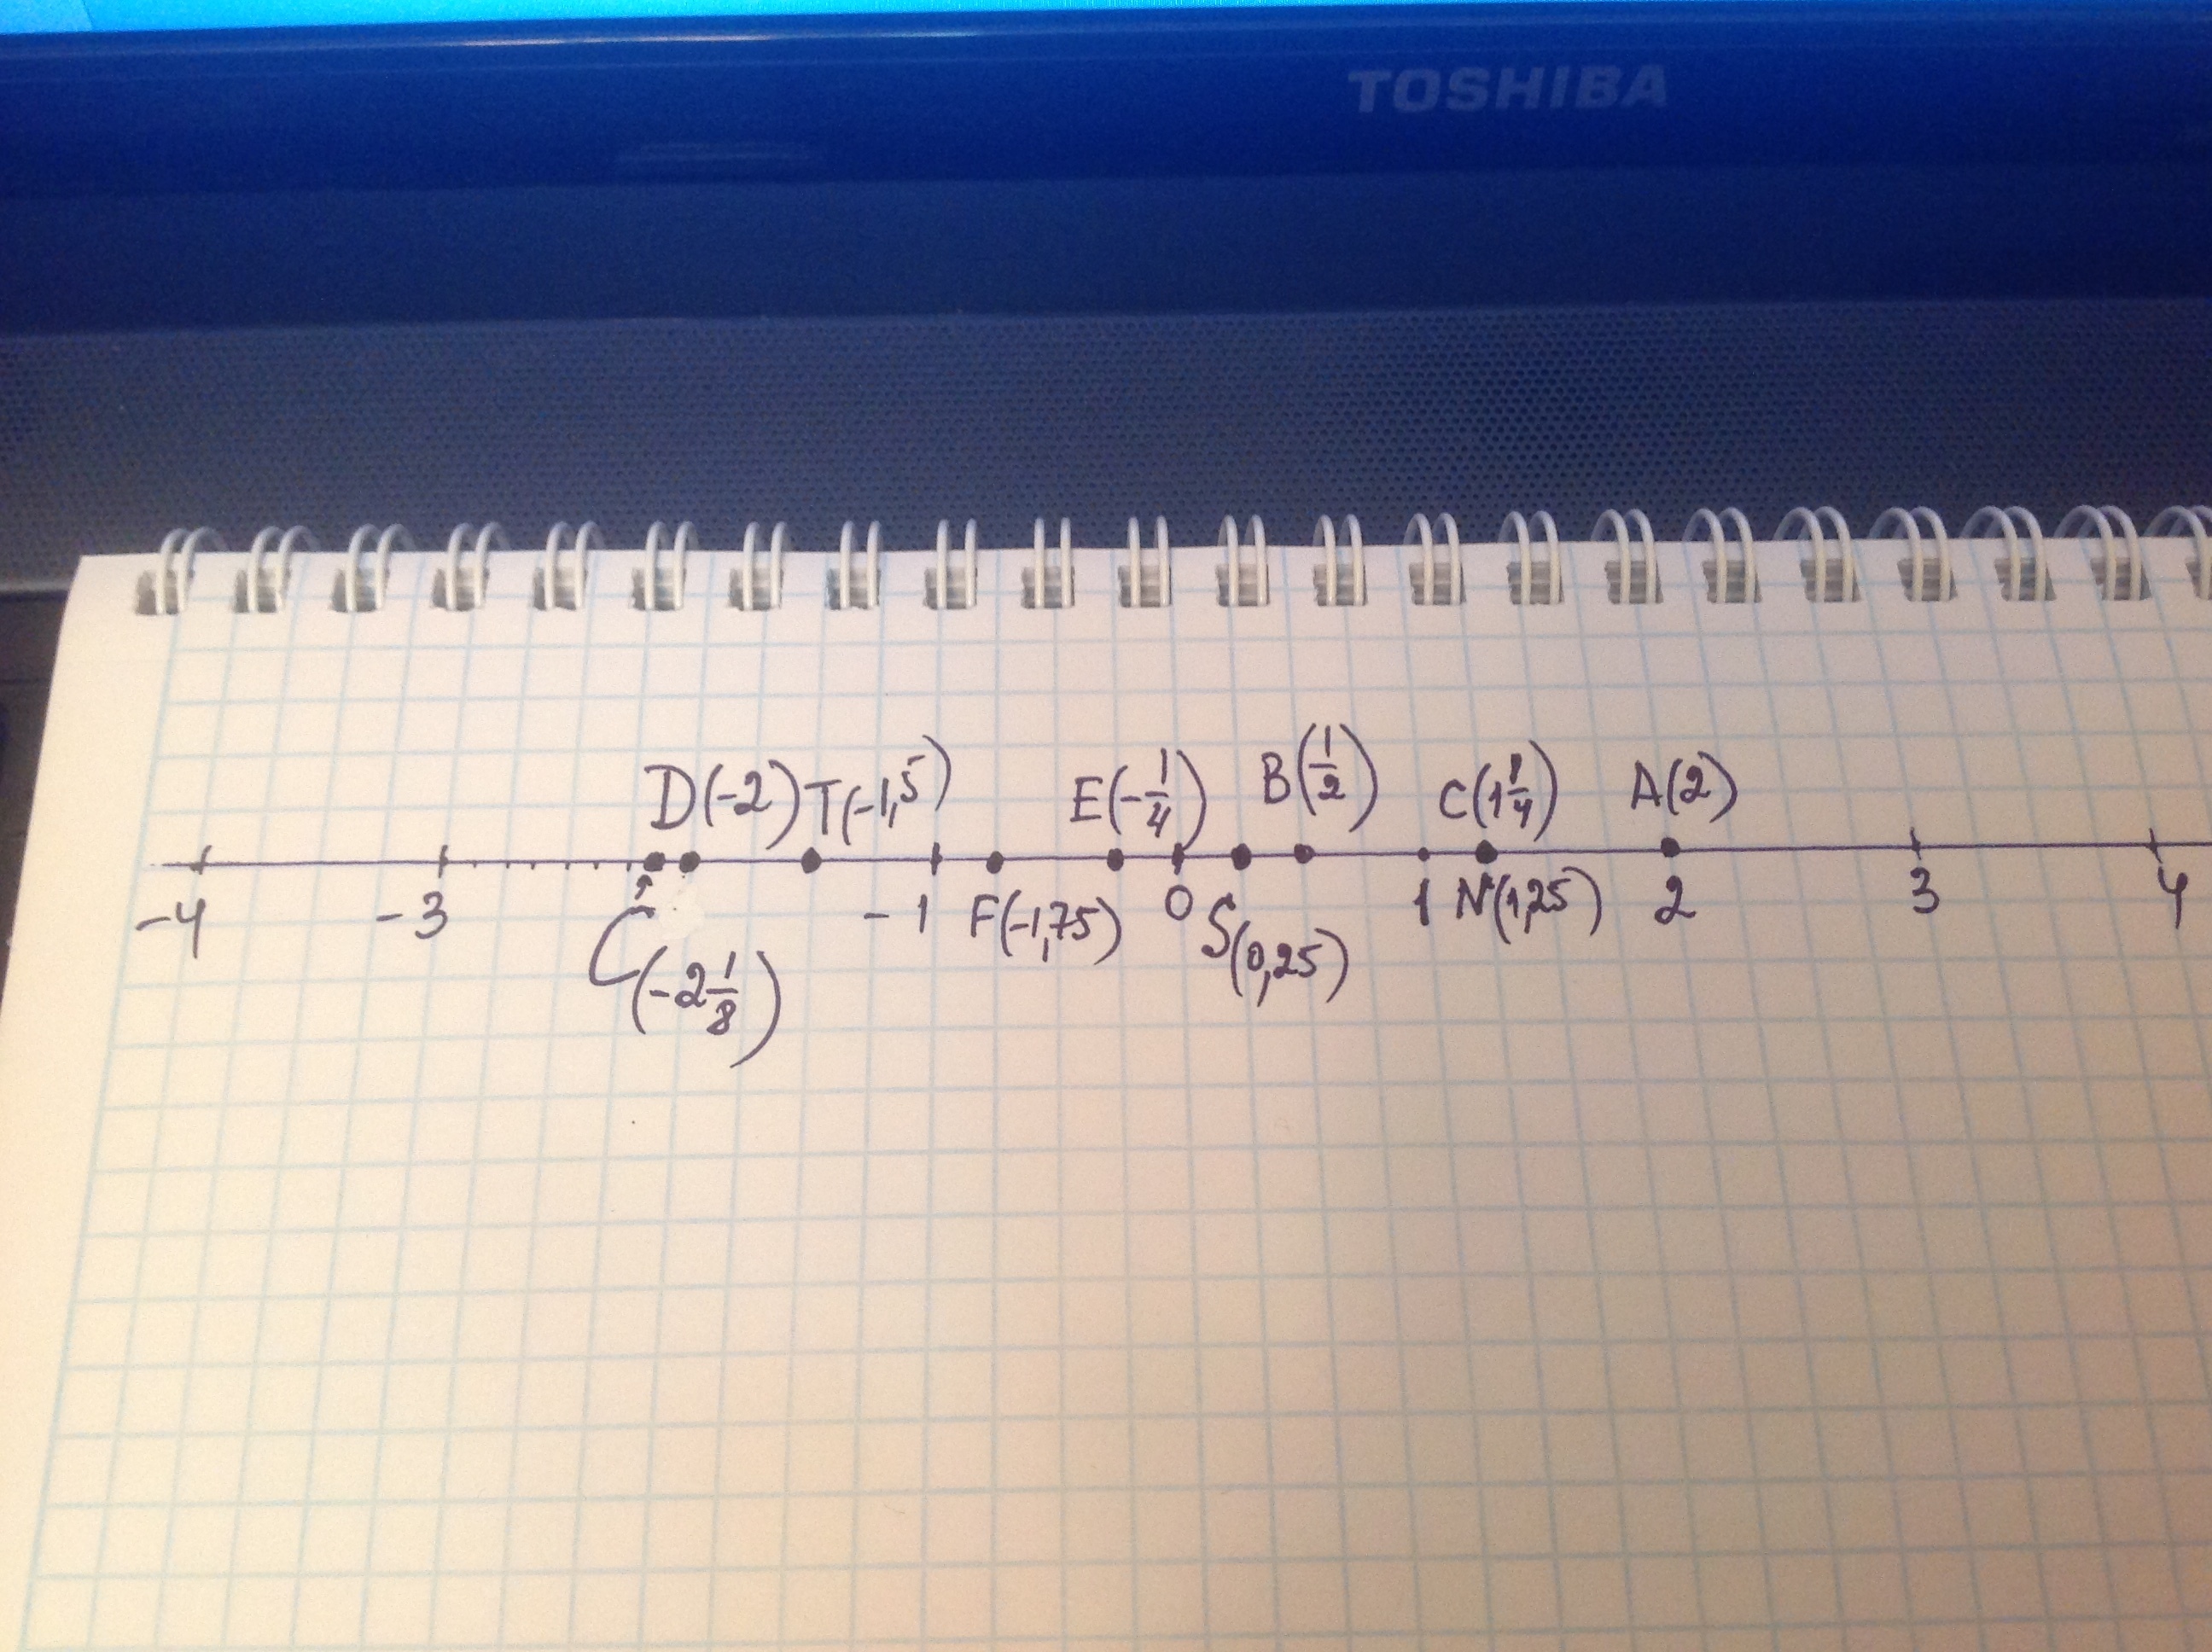 TOSHIBA
D(-2) T(-1,5) E(-1/4) B(1/2) C(1 1/4) A(2)
-4 -3 -1 F(-1,75) 0 S(0,25) 1 N(1,25) 2 3 4
C(-2 1/8)